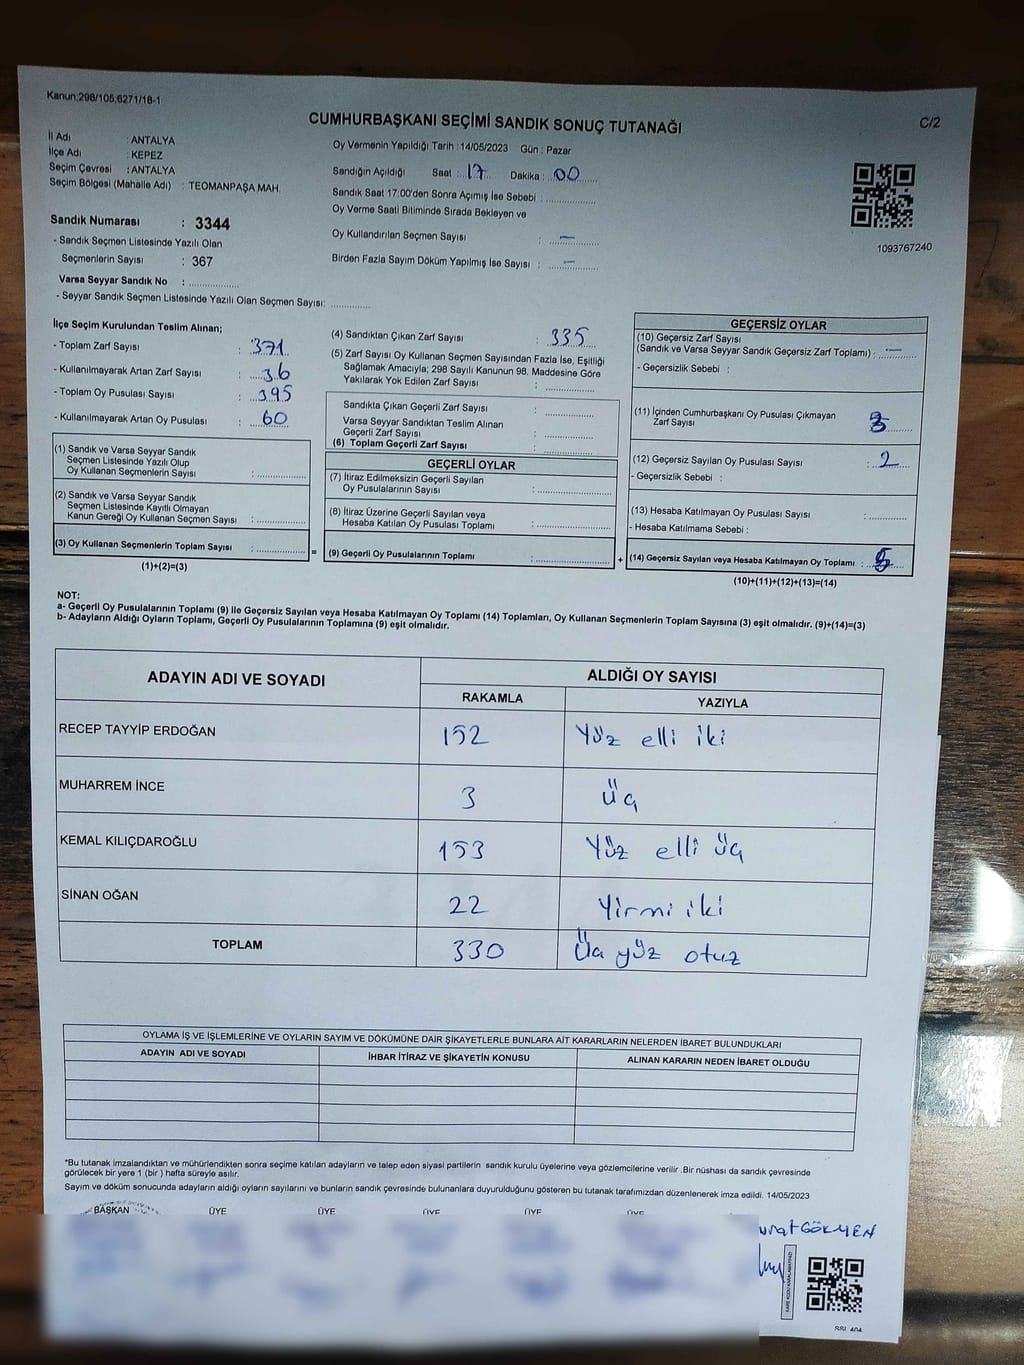 Kanun;298/105,6271/18-1
C/2
CUMHURBAŞKANI SEÇİMİ SANDIK SONUÇ TUTANAĞI
İl Adı : ANTALYA
İlçe Adı : KEPEZ
Seçim Çevresi : ANTALYA
Seçim Bölgesi (Mahalle Adı) : TEOMANPAŞA MAH.
Sandık Numarası : 3344
- Sandık Seçmen Listesinde Yazılı Olan
Seçmenlerin Sayısı : 367
Varsa Seyyar Sandık No : ................
- Seyyar Sandık Seçmen Listesinde Yazılı Olan Seçmen Sayısı: .............
Oy Vermenin Yapıldığı Tarih :14/05/2023 Gün : Pazar
Sandığın Açıldığı Saat : 17 Dakika : 00
Sandık Saat 17:00'den Sonra Açımış İse Sebebi : ................
Oy Verme Saati Bitiminde Sırada Bekleyen ve
Oy Kullandırılan Seçmen Sayısı : —
Birden Fazla Sayım Döküm Yapılmış İse Sayısı : —
1093767240
İlçe Seçim Kurulundan Teslim Alınan;
- Toplam Zarf Sayısı : 371
- Kullanılmayarak Artan Zarf Sayısı : 36
- Toplom Oy Pusulası Sayısı : 395
- Kullanılmayarak Artan Oy Pusulası : 60
(1) Sandık ve Varsa Seyyar Sandık
Seçmen Listesinde Yazılı Olup
Oy Kullanan Seçmenlerin Sayısı : ................
(2) Sandık ve Varsa Seyyar Sandık
Seçmen Listesinde Kayıtlı Olmayan
Kanun Gereği Oy Kullanan Seçmen Sayısı : ................
(3) Oy Kullanan Seçmenlerin Toplam Sayısı : ................ =
(1)+(2)=(3)
(4) Sandıktan Çıkan Zarf Sayısı : 335
(5) Zarf Sayısı Oy Kullanan Seçmen Sayısından Fazla İse, Eşitliği
Sağlamak Amacıyla; 298 Sayılı Kanunun 98. Maddesine Göre
Yakılarak Yok Edilen Zarf Sayısı : ................
Sandıkta Çıkan Geçerli Zarf Sayısı : ................
Varsa Seyyar Sandıktan Teslim Alınan
Geçerli Zarf Sayısı : ................
(6) Toplam Geçerli Zarf Sayısı : ................
GEÇERLİ OYLAR
(7) İtiraz Edilmeksizin Geçerli Sayılan
Oy Pusulalarının Sayısı : ................
(8) İtiraz Üzerine Geçerli Sayılan veya
Hesaba Katılan Oy Pusulası Toplamı : ................
(9) Geçerli Oy Pusulalarının Toplamı : ................ +
GEÇERSİZ OYLAR
(10) Geçersiz Zarf Sayısı
(Sandık ve Varsa Seyyar Sandık Geçersiz Zarf Toplamı) : —
- Geçersizlik Sebebi :
(11) İçinden Cumhurbaşkanı Oy Pusulası Çıkmayan
Zarf Sayısı : 3
(12) Geçersiz Sayılan Oy Pusulası Sayısı : 2
- Geçersizlik Sebebi :
(13) Hesaba Katılmayan Oy Pusulası Sayısı : ................
- Hesaba Katılmama Sebebi :
(14) Geçersiz Sayılan veya Hesaba Katılmayan Oy Toplamı : 5
(10)+(11)+(12)+(13)=(14)
NOT:
a- Geçerli Oy Pusulalarının Toplamı (9) ile Geçersiz Sayılan veya Hesaba Katılmayan Oy Toplamı (14) Toplamları, Oy Kullanan Seçmenlerin Toplam Sayısına (3) eşit olmalıdır. (9)+(14)=(3)
b- Adayların Aldığı Oyların Toplamı, Geçerli Oy Pusulalarının Toplamına (9) eşit olmalıdır.
ADAYIN ADI VE SOYADI
ALDIĞI OY SAYISI
RAKAMLA YAZIYLA
RECEP TAYYİP ERDOĞAN 152 Yüz elli iki
MUHARREM İNCE 3 Üç
KEMAL KILIÇDAROĞLU 153 Yüz elli üç
SİNAN OĞAN 22 Yirmi iki
TOPLAM 330 Üç yüz otuz
OYLAMA İŞ VE İŞLEMLERİNE VE OYLARIN SAYIM VE DÖKÜMÜNE DAİR ŞİKAYETLERLE BUNLARA AİT KARARLARIN NELERDEN İBARET BULUNDUKLARI
ADAYIN ADI VE SOYADI İHBAR İTİRAZ VE ŞİKAYETİN KONUSU ALINAN KARARIN NEDEN İBARET OLDUĞU
*Bu tutanak imzalandıktan ve mühürlendikten sonra seçime katılan adayların ve talep eden siyasi partilerin sandık kurulu üyelerine veya gözlemcilerine verilir .Bir nüshası da sandık çevresinde
görülecek bir yere 1 (bir ) hafta süreyle asılır.
Sayım ve döküm sonucunda adayların aldığı oyların sayılarını ve bunların sandık çevresinde bulunanlara duyurulduğunu gösteren bu tutanak tarafımızdan düzenlenerek imza edildi. 14/05/2023
BAŞKAN ÜYE ÜYE ÜYE ÜYE ÜYE
GÖKMEN